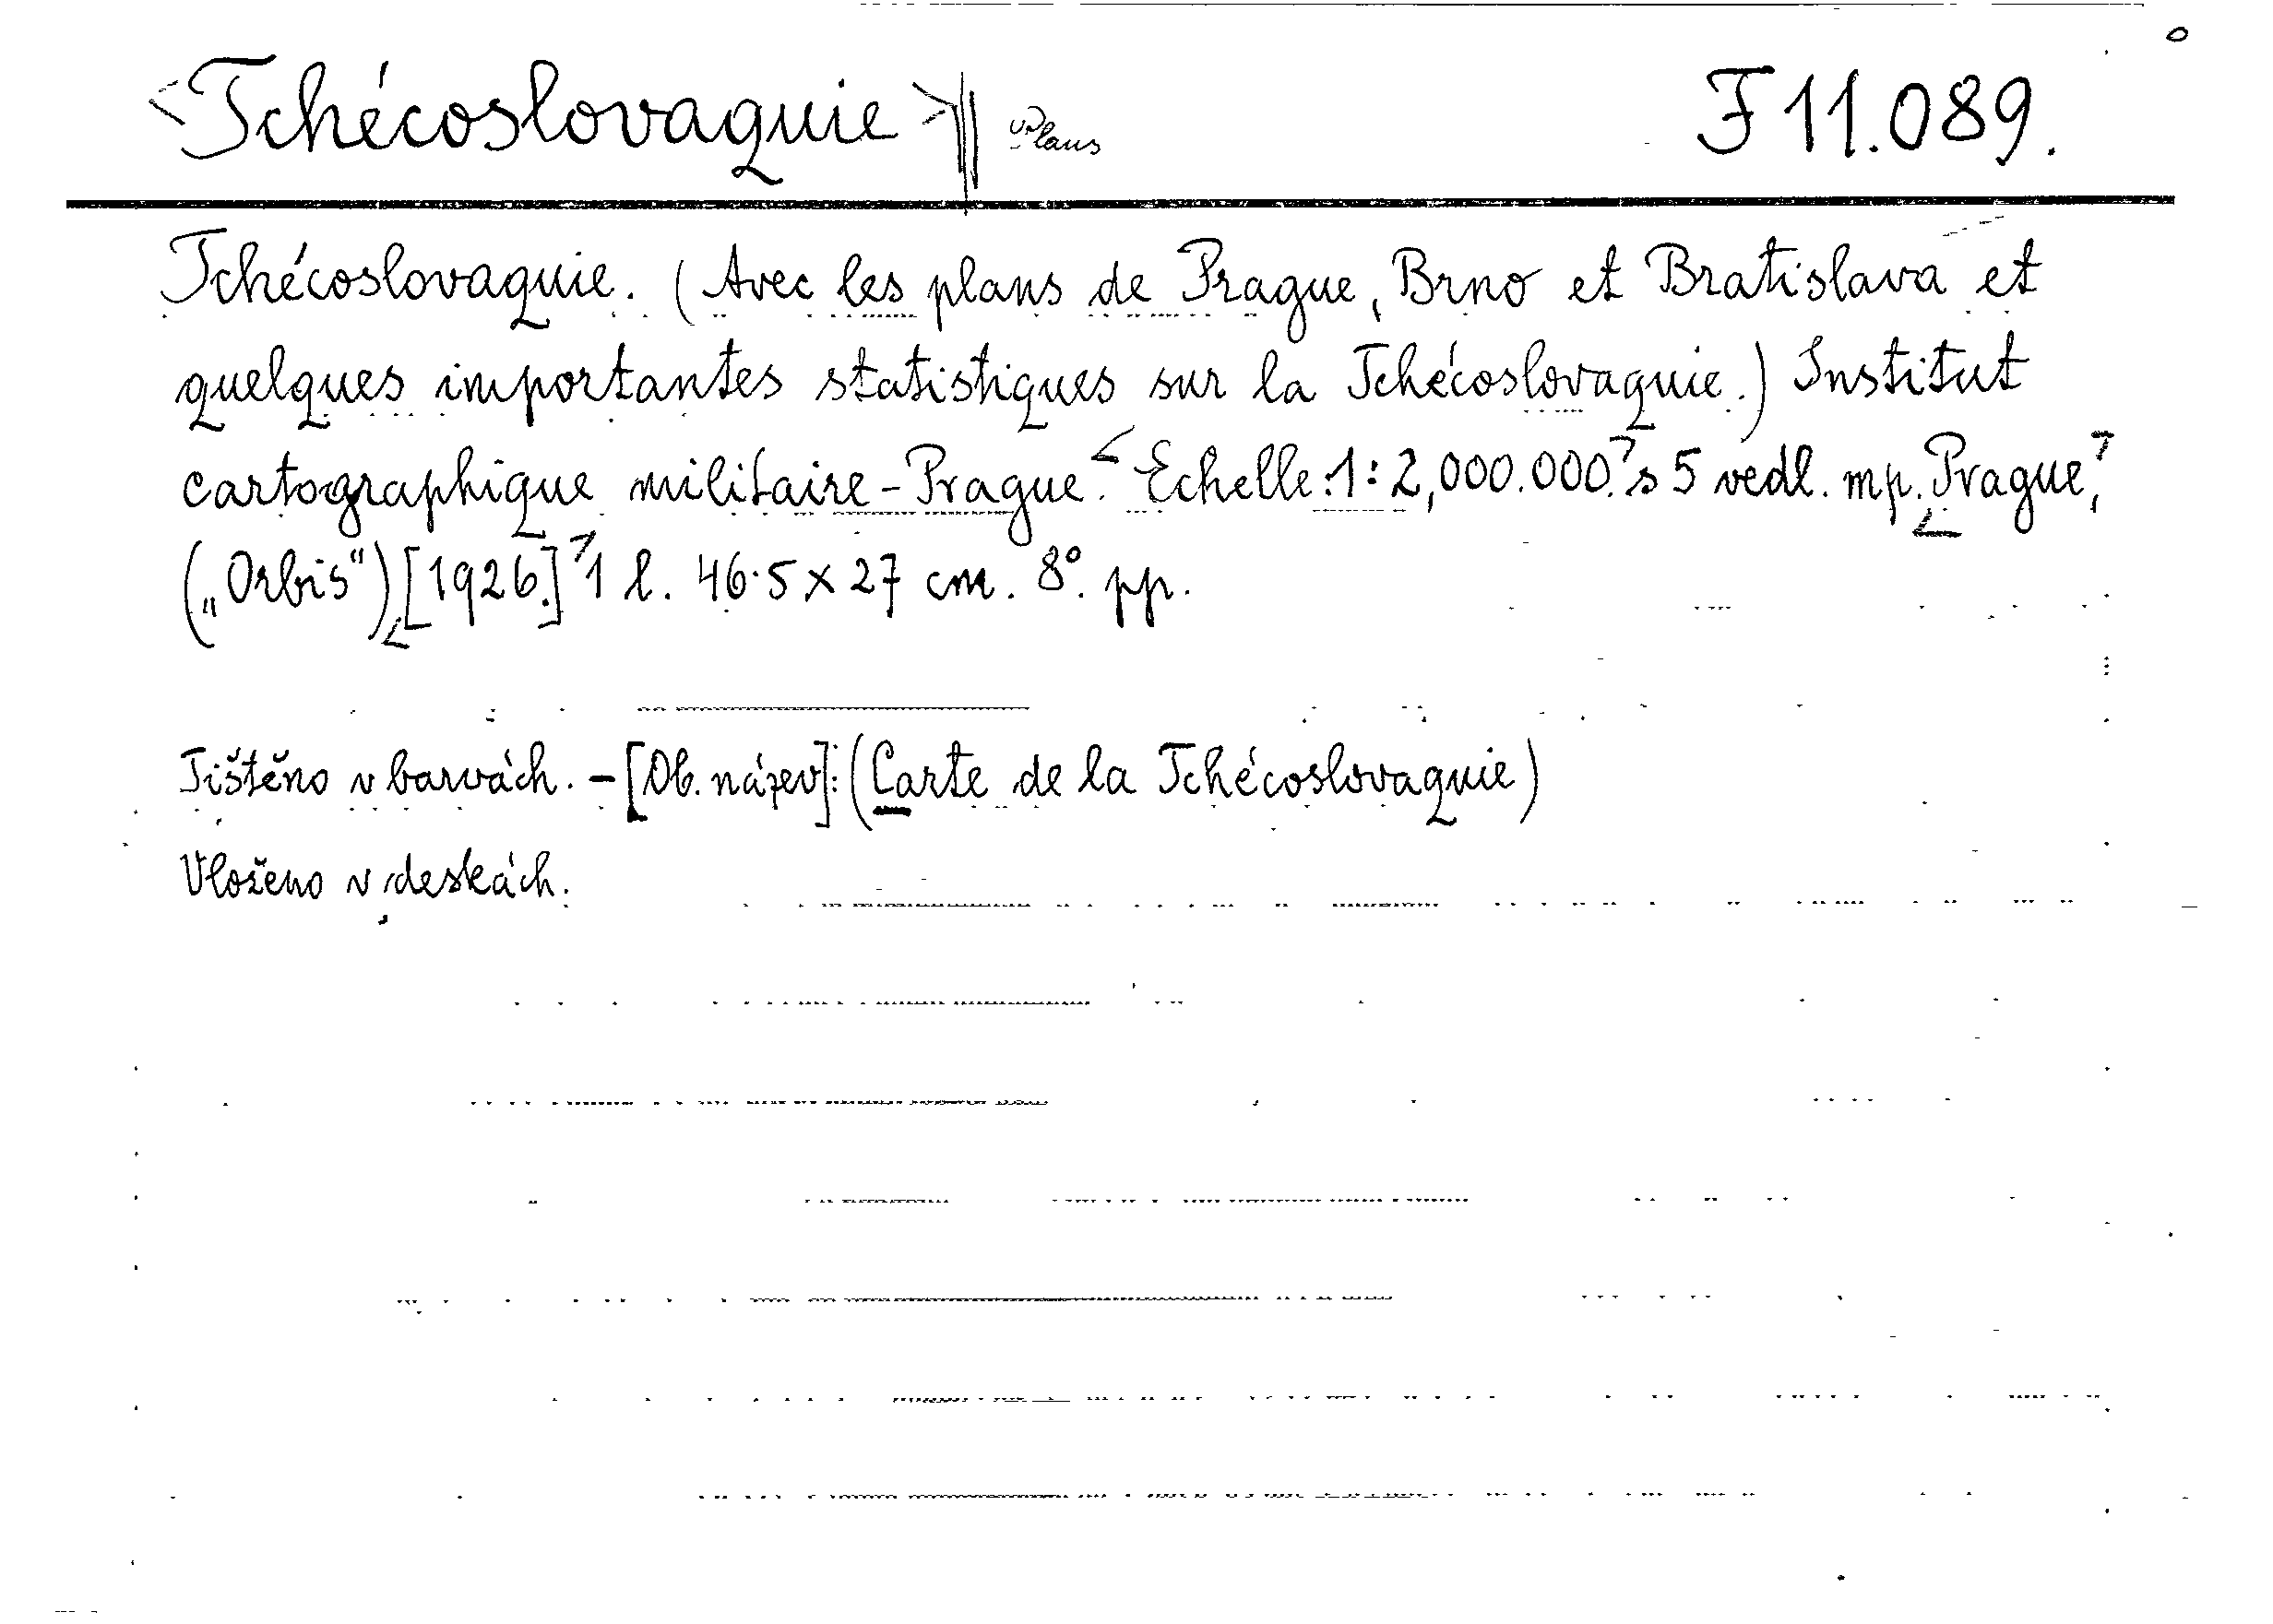 <Tchécoslovaquie>|| Plans F 11.089.
Tchécoslovaquie. (Avec les plans de Prague, Brno et Bratislava et
quelques importantes statistiques sur la Tchécoslovaquie.) Institut
cartographique militaire-Prague. <Echelle:1:2,000.000.> s 5 vedl. mp. <Prague,>
(„Orbis“) <[1926.]> 1 l. 46·5 x 27 cm. 8°. pp.
Tištěno v barvách. – [Ob. název]: (Carte de la Tchécoslovaquie)
Vloženo v deskách.